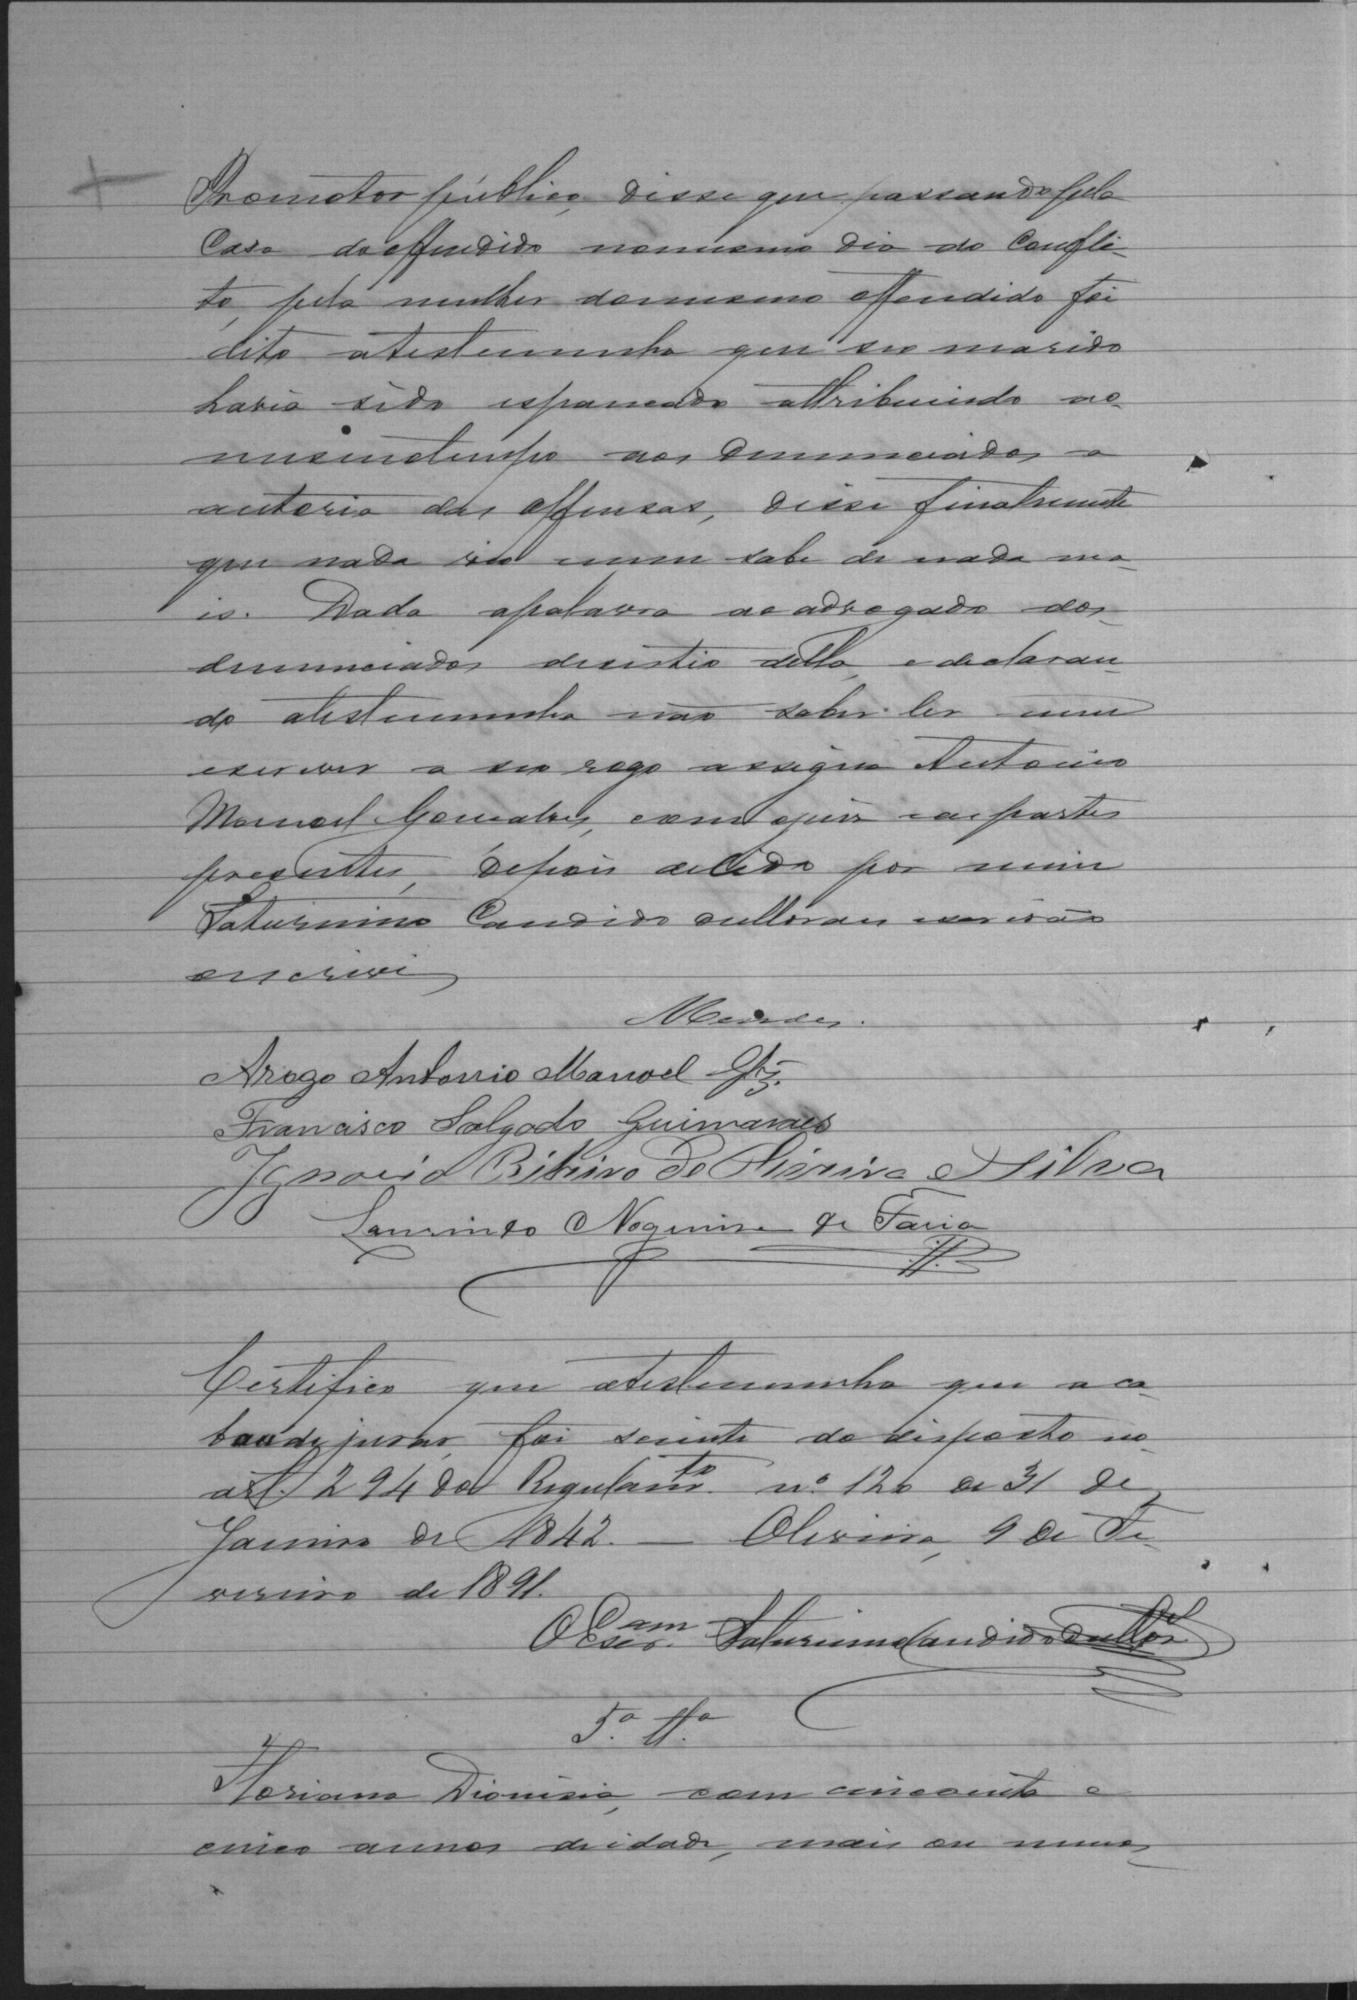 Promotor publico, disse que passando pela
Casa do offendido nomesmo dia do Confli-
to, pela mulher domesmo offendido foi
dito atestemunha que seo marido
havia sido espancado attribuindo ao
mesmotempo aos denunciados a
autoria das offensas, disse finalmente
que nada vio nem sabe de nada ma-
is. Dada apalavra aoadvogado dos
denunciados desistio della, e declaran-
do atestemunha não saber ler nem
escrever a seo rogo assigna Antonio
Manoel Gonçalves, com ojuiz easpartes
presentes, depois delido por mim
Saturnino Candido escrivão
oescrivi
Mendes.
Arogo Antonio Manoel Glz.
Francisco Salgado Guimarães
Ignacio Ribeiro de Oliveira e Silva
Laurindo Nogueira de Faria
Certifico que atestemunha que aca-
baude jurar, foi sciente do disposto no
art. 294 do Regulamto. nº 120 de 31 de
Janeiro de 1842. — Oliveira, 9 de Fe-
vereiro de 1891.
O Escram. Saturnino Candido
5.ª Tta.
Floriano Dionisio, com cincoenta e
cinco annos deidade, mais ou menos,